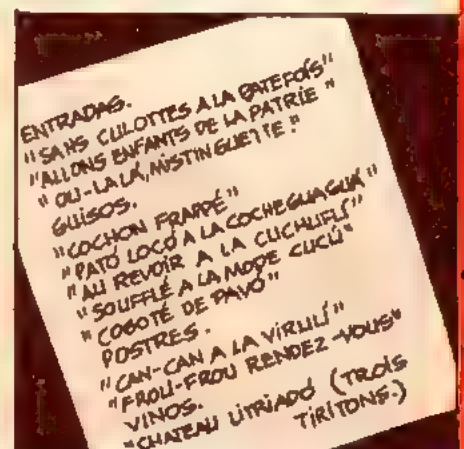 ENTRADAS.
"SANS CULOTTES A LA BATEFOIS"
"ALLONS ENFANTS DE LA PATRIE"
"OU-LALÁ, MISTINGUETTE!"
GUISOS.
"COCHON FRAPPÉ"
"PATÓ LOCÓ A LA COCHEGUAGUÁ"
"AU REVOIR A LA CUCHUFLÍ"
"SOUFFLÉ A LA MODE CUCÚ"
"COGOTÉ DE PAVÓ"
POSTRES.
"CAN-CAN A LA VIRULÍ"
"FROU-FROU RENDEZ-VOUS"
VINOS.
"CHATEAU LITRIADÓ (TROIS
TIRITONS.)